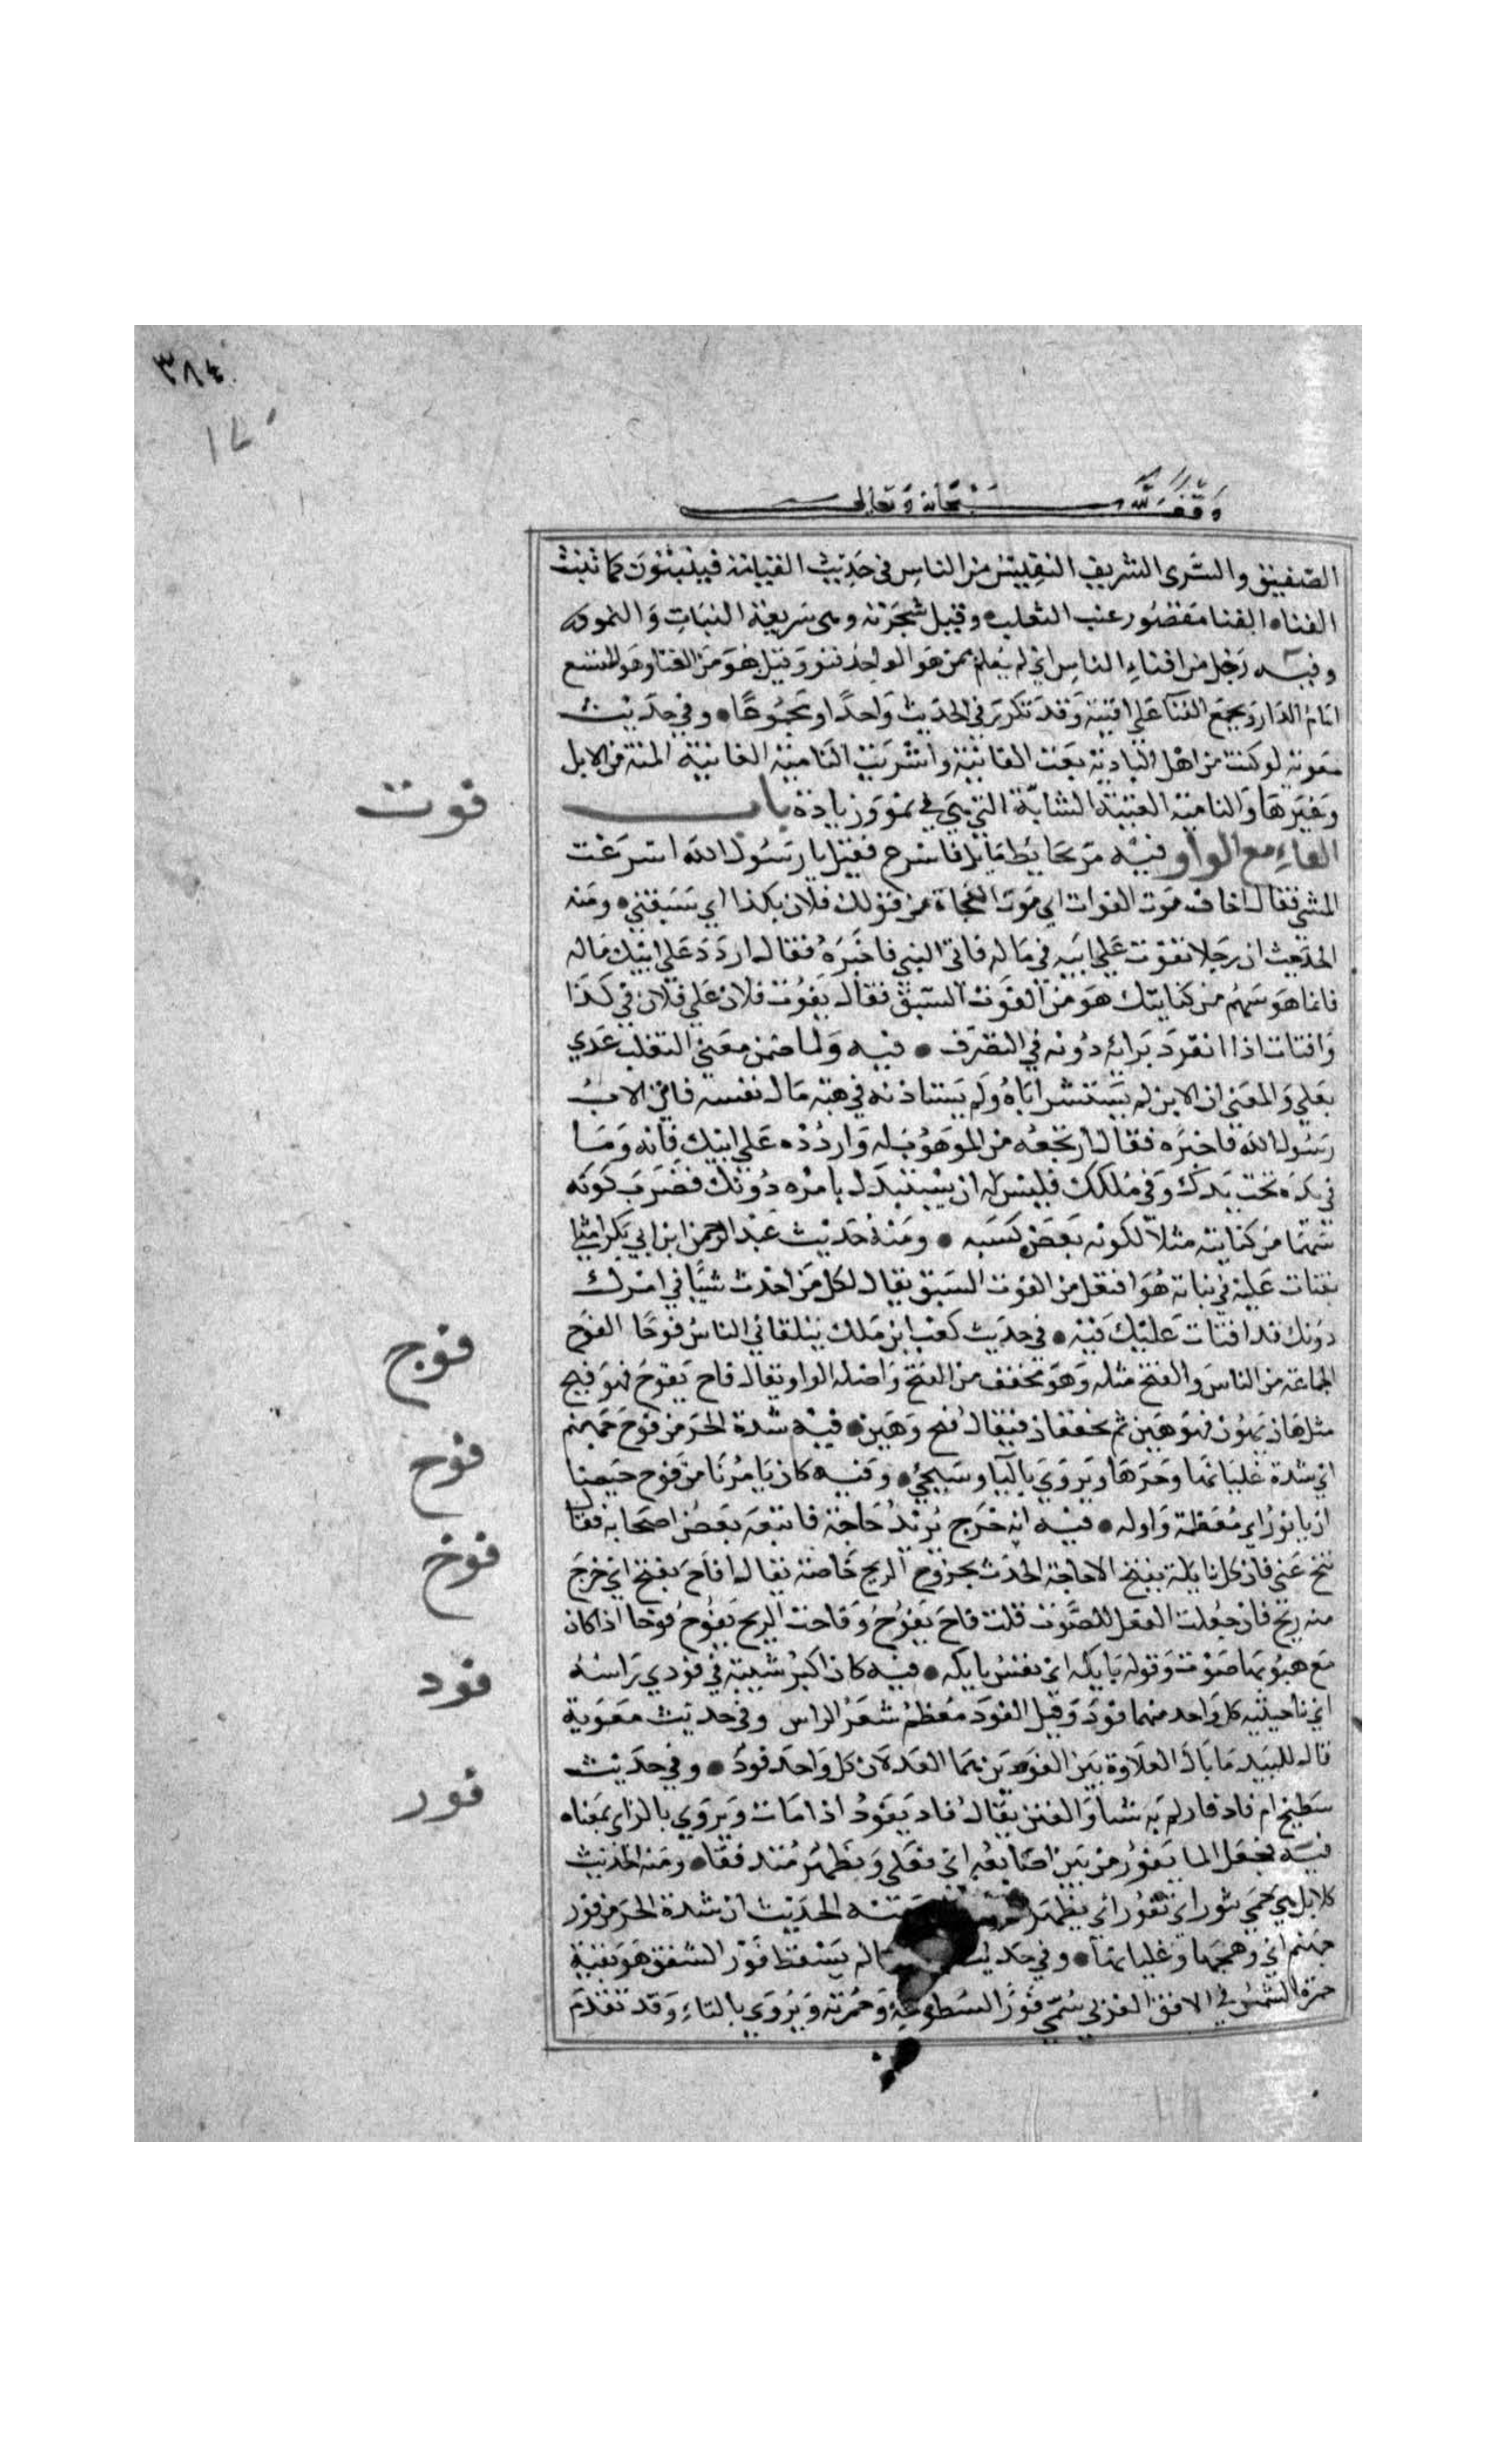 ٣٨٤
١٧٠
وقف لله سبحانه وتعالى
الضفيق والسرى الشريف النفيس من الناس في حديث القيامة فينبتون كما تنبت
الفناه الفنا مقصور عنب الثعلب وقيل شجرته وهي سريعة النبات والنمو
وفيه رجل من افناء الناس اي لم يعلم ممن هو الواحد فنو وقيل هو من الفنا وهو المتسع
امام الدار ويجمع الفنآ على افنية وقد تكرر في الحديث واحدًا ومجموعًا • وفي حديث
معوية لو كنت من اهل البادية بعت الفانية واشتريت النامية الفانية المسنة من الابل
وغيرها والنامية الفتية الشابة التي هي في نمو وزيادة باب
فوت
الفاء مع الواو فيه مر بحايط مايل فاسرع فقيل يا رسول الله اسرعت
المشي فقال اخاف موت الفوات اي موت الفجاة من قولك فلان بكذا اي سبقني ومنه
الحديث ان رجلا تفوت على ابيه في ماله فاتى النبي فاخبره فقال اردد على ابنك ماله
فانما هو سهم من كنانتك هو من الفوت السبق فقال يفوت فلان على فلان في كذا
وافتات اذا انفرد برايه دونه في التصرف • فيه ولما ضمن معنى التغلب عدي
بعلى والمعنى ان الابن لم يستشر اباه ولم يستاذنه في هبة مال نفسه فاتى الاب
رسول الله فاخبره فقال ارتجعه من الموهوب له واردده على ابنك فانه وما
في يده تحت يدك وفي ملكك فليس له ان يستبدل بامره دونك فضرب كونه
سهما من كنانته مثلا لكونه بعض كسبه • ومنه حديث عبد الرحمن ابن ابي بكر امثلي
يفتات عليه في بناته هو افتعل من الفوت السبق يقال لكل من احدث شيًا في امرك
دونك قد افتات عليك فيه • في حديث كعب ابن ملك يتلقاني الناس فوجًا الفوج
فوج
الجماعة من الناس والفيج مثله وهو مخفف من الفيج واصله الواو يقال فاج يفوج فهو فيج
مثل هان يهون فهو هين ثم يخففان فيقال فيج وهين • فيه شدة الحر من فوح جهنم
فوح
اي شدة غليانها وحرها ويروى باليا وسيجي • وفيه كان يامرنا من فوح حيضنا
ان ياتزر اي معظمة واوله • فيه انه خرج يريد حاجة فاتبعه بعض اصحابه فقال
فوخ
تنح عني فان كل نايلة تفيخ الافاخة الحدث بخروج الريح خاصة يقال افاخ يفيخ اي خرج
منه ريح فان جعلت الفعل للصوت قلت فاخ يفوخ وفاخت الريح تفوخ فوخا اذا كان
مع هبوبها صوت وقوله بايلة اي نفس بايلة • فيه كان اكثر شيبه في فودي راسه
فود
اي ناحيتيه كل واحد منهما فود وقيل الفود معظم شعر الراس وفي حديث معوية
قال للبيد ما بال العلاوة بين الفودين هما العدلان كل واحد فود • وفي حديث
سطيح ام فاد فازلم به شاو العنن يقال فاد يفود اذا مات ويروى بالزاي بمعناه
فور
فيه فجعل الما يفور من بين اصابعه اي يغلي ويظهر متدفقا • ومنه الحديث
كلا بل هي حمى تثور اي تفور اي يظهر حرها ومنه الحديث ان شدة الحر من فور
جهنم اي وهجها وغليانها • وفي حديث مالم يسقط فور الشفق هو بقية
حمرة الشمس في الافق الغربي سمي فورًا لسطوعه وحمرته ويروى بالثاء وقد تقدم